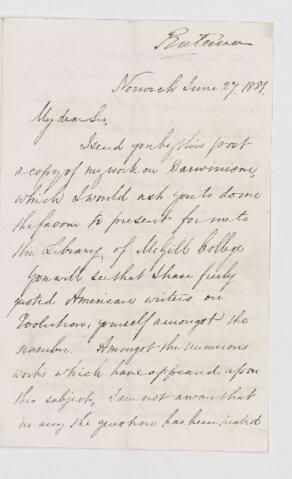 Norwich June 27. 1881.
My dear Sir,
I send you by this post
a copy of my work on Darwinism,
which I would ask you to do me
the favour to present for me to
the Library of McGill College
You will see that I have freely
quoted American writers on
Evolution, yourself amongst the
number. Amongst the numerous
works which have appeared upon
this subject, I am not aware that
in any the question has been treated